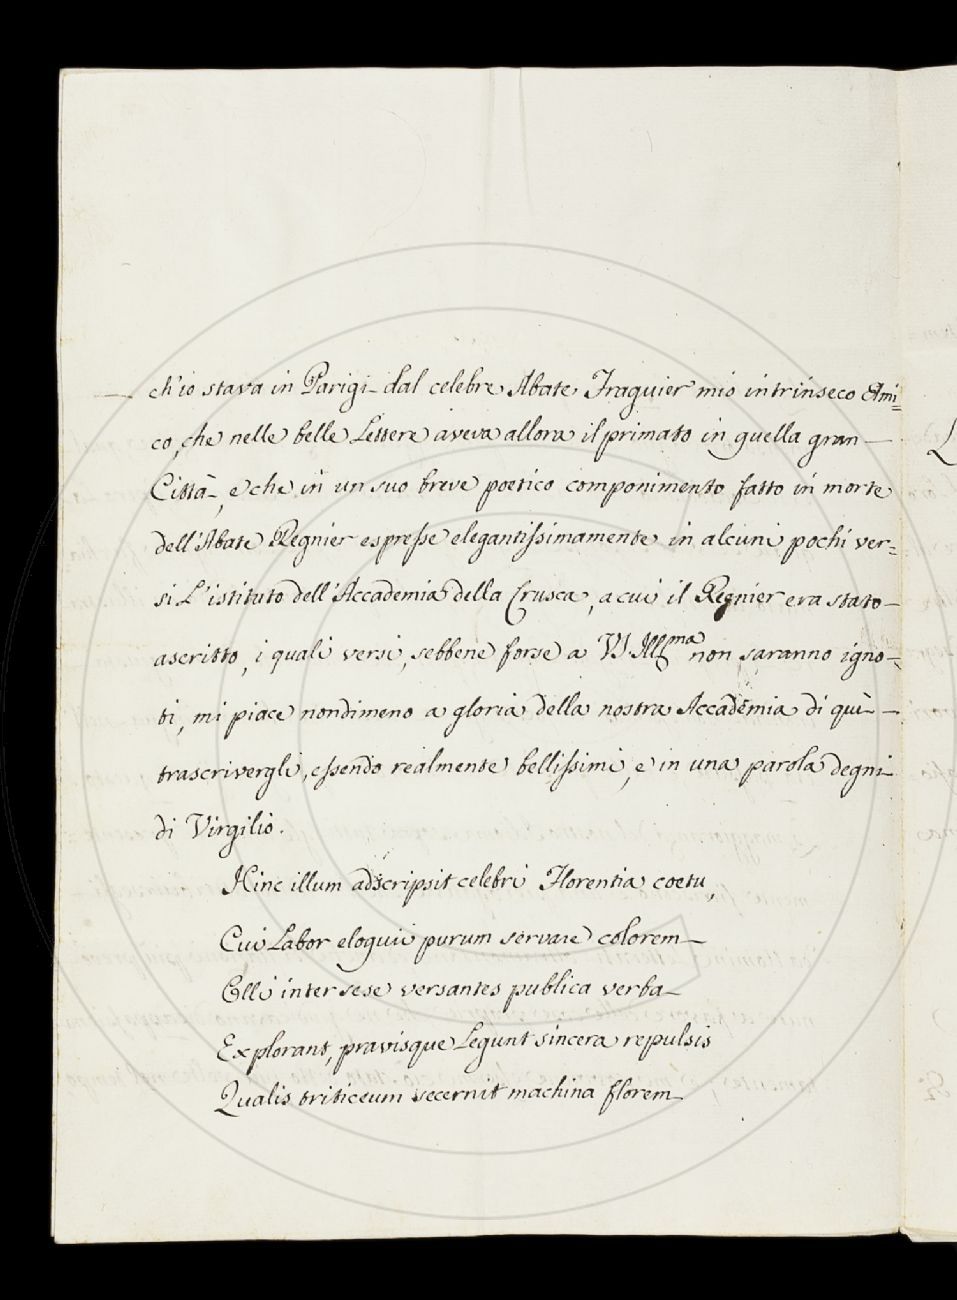 ch'io stava in Parigi dal celebre Abate Fraguier mio intrinseco Ami=
co, che nelle belle Lettere aveva allora il primato in quella gran
Città, e che in un suo breve poetico componimento fatto in morte
dell'Abate Regnier espresse elegantissimamente in alcuni pochi ver=
si L'istituto dell'Accademia della Crusca, a cui il Regnier era stato
ascritto, i quali versi, sebbene forse a VS Illma non saranno igno-
ti, mi piace nondimeno a gloria della nostra Accademia di quì
trascrivergli, essendo realmente bellissimi, e in una parola degni
di Virgilio.
Hinc illum adscripsit celebri Florentia coetu,
Cui Labor eloquii purum servare colorem
Olli inter sese versantes publica verba
Explorant, pravisque Legunt sincera repulsis
Qualis triticeum secernit machina florem